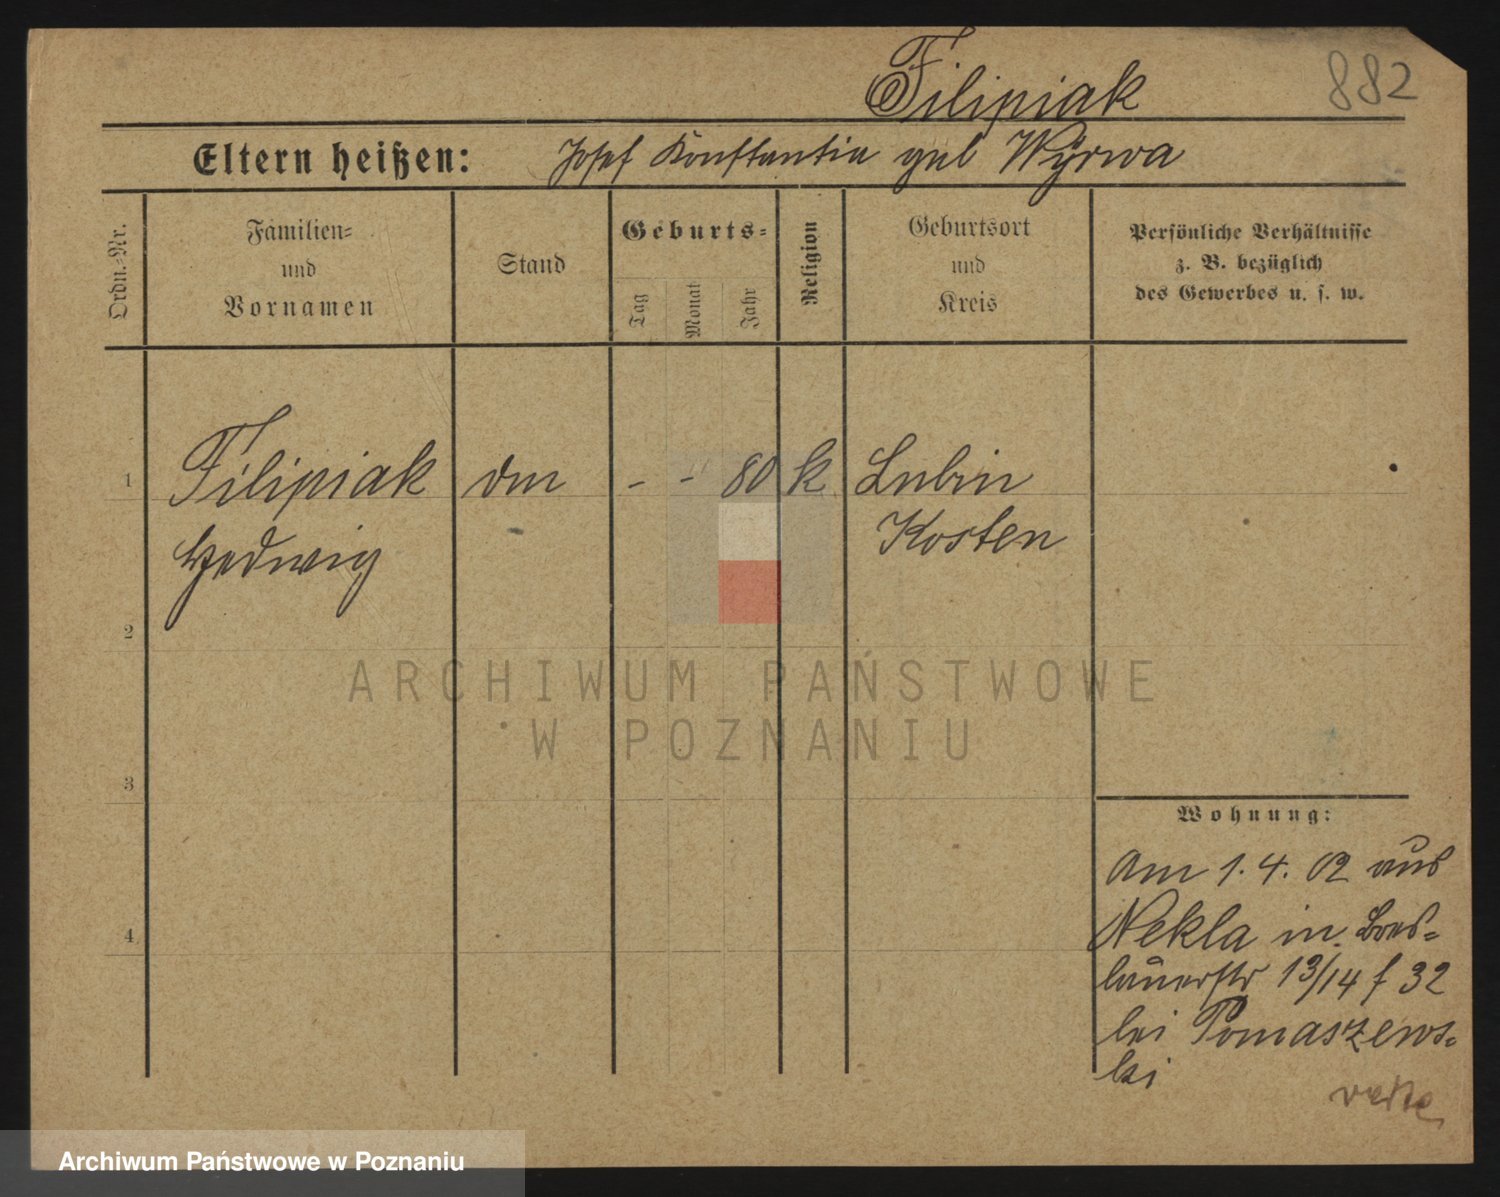 Filipiak
882
Eltern heißen: Josef Konstantia geb Wyrwa
Ordn.-Nr.
Familien- und Vornamen
Stand
Geburts-
Tag
Monat
Jahr
Religion
Geburtsort und Kreis
Persönliche Verhältnisse
z. B. bezüglich
des Gewerbes u. s. w.
1 Filipiak - - 80 k Lubin
Hedwig Kosten
2
ARCHIWUM PAŃSTWOWE
W POZNANIU
3
Wohnung:
Am 1. 4. 02 aus
4
Nekla in Bres-
lauerstr 13/14 f 32
bei Tomaszews-
ki
Archiwum Państwowe w Poznaniu